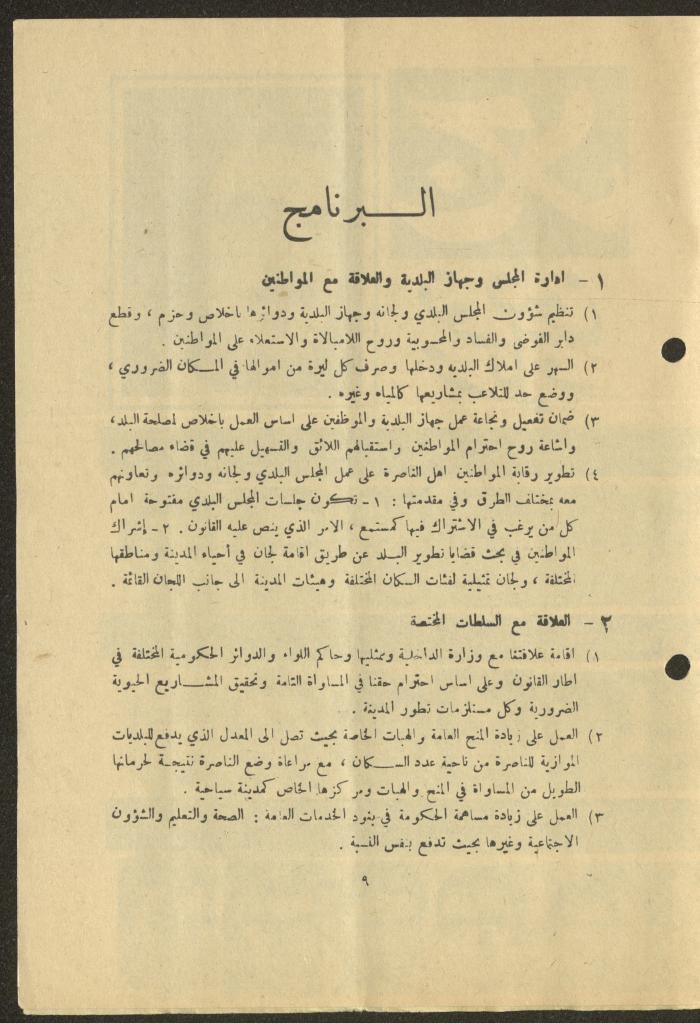 البرنامج
١ - ادارة المجلس وجهاز البلدية والعلاقة مع المواطنين
١) تنظيم شؤون المجلس البلدي ولجانه وجهاز البلدية ودوائرها باخلاص وحزم ، وقطع
دابر الفوضى والفساد والمحسوبية وروح اللامبالاة والاستعلاء على المواطنين .
٢) السهر على املاك البلديه ودخلها وصرف كل ليرة من اموالها في المكان الضروري ،
ووضع حد للتلاعب بمشاريعها كالمياه وغيره .
٣) ضمان تفعيل ونجاعة عمل جهاز البلدية والموظفين على اساس العمل باخلاص لمصلحة البلد،
واشاعة روح احترام المواطنين واستقبالهم اللائق والتسهيل عليهم في قضاء مصالحهم .
٤) تطوير رقابة المواطنين اهل الناصرة على عمل المجلس البلدي ولجانه ودوائره وتعاونهم
معه بمختلف الطرق وفي مقدمتها : ١ - تكون جلسات المجلس البلدي مفتوحة امام
كل من يرغب في الاشتراك فيها كمستمع ، الامر الذي ينص عليه القانون . ٢ - إشراك
المواطنين في بحث قضايا تطوير البلد عن طريق اقامة لجان في أحياء المدينة ومناطقها
المختلفة ، ولجان تمثيلية لفئات السكان المختلفة وهيئات المدينة الى جانب اللجان القائمة .
٢ - العلاقة مع السلطات المختصة
١) اقامة علاقتنا مع وزارة الداخلية وممثليها وحاكم اللواء والدوائر الحكومية المختلفة في
اطار القانون وعلى اساس احترام حقنا في المساواة التامة وتحقيق المشاريع الحيوية
الضرورية وكل مستلزمات تطور المدينة .
٢) العمل على زيادة المنح العامة والهبات الخاصة بحيث تصل الى المعدل الذي يدفع للبلديات
الموازية للناصرة من ناحية عدد السكان ، مع مراعاة وضع الناصرة نتيجة لحرمانها
الطويل من المساواة في المنح والهبات ومركزها الخاص كمدينة سياحية .
٣) العمل على زيادة مساهمة الحكومة في بنود الخدمات العامة : الصحة والتعليم والشؤون
الاجتماعية وغيرها بحيث تدفع بنفس النسبة .
٩